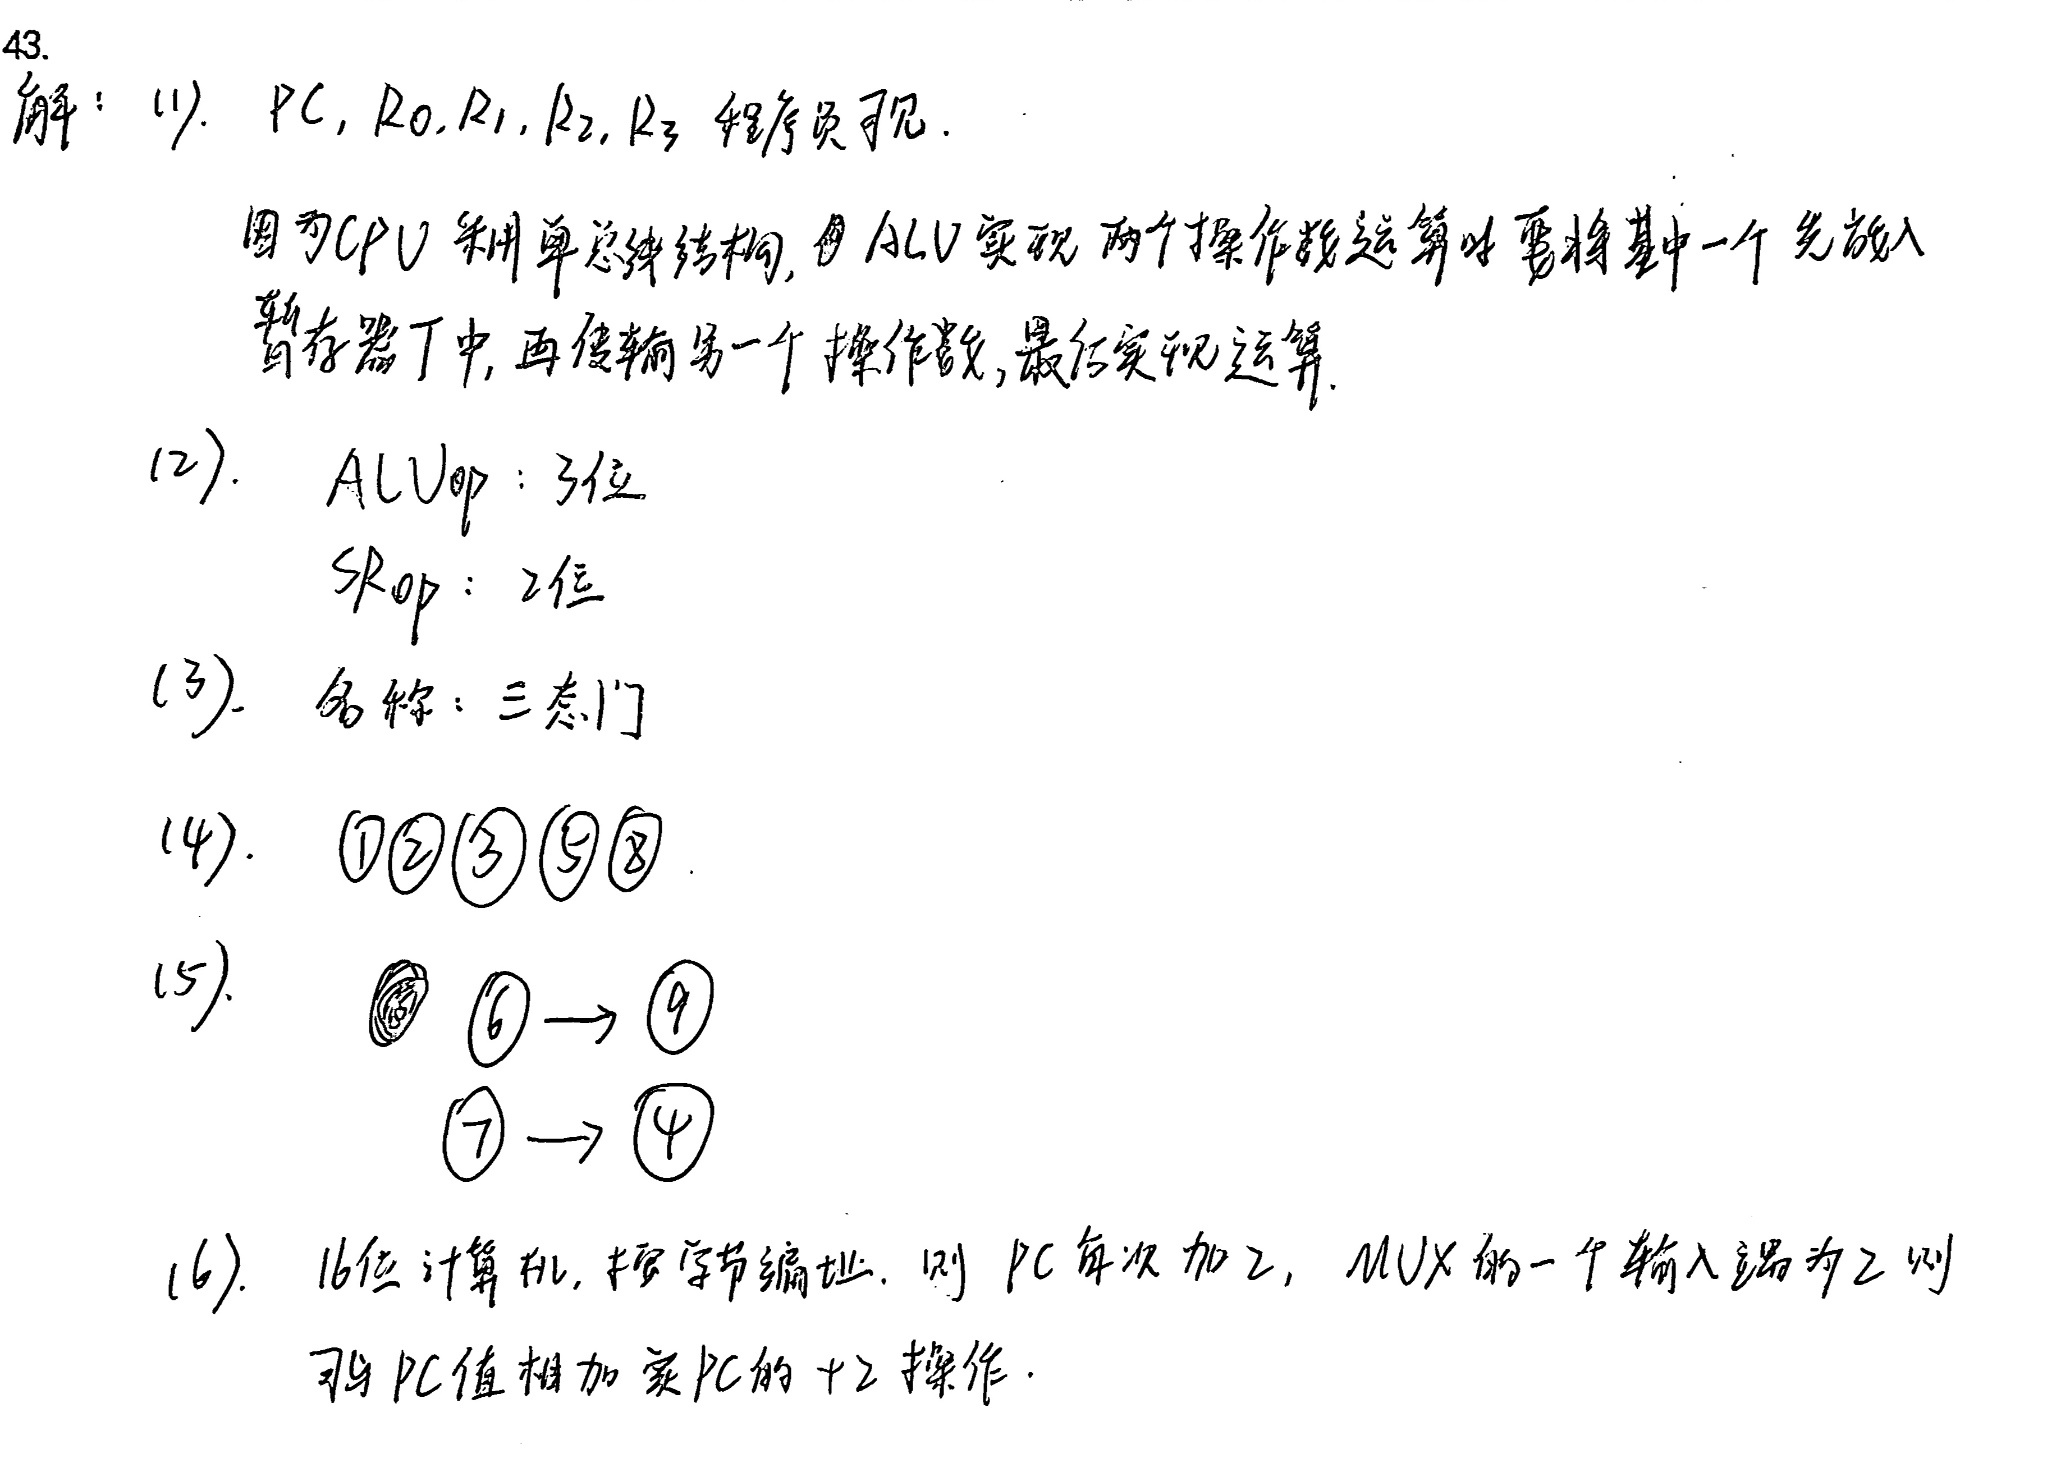 43.
解: (1). PC, R0, R1, R2, R3 程序员可见.
因为CPU 采用单总线结构, ALU 实现 两个操作数运算时要将其中一个先放入
暂存器T中, 再传输另一个操作数, 最后实现运算.
(2). ALUop: 3位
SRop: 2位
(3). 名称: 三态门
(4). ①②③⑤⑧.
(5). ⑥→⑨
⑦→④
(6). 16位计算机, 按字节编址. 则 PC 每次加2, MUX的一个输入端为2则
可与PC值相加实PC的+2操作.